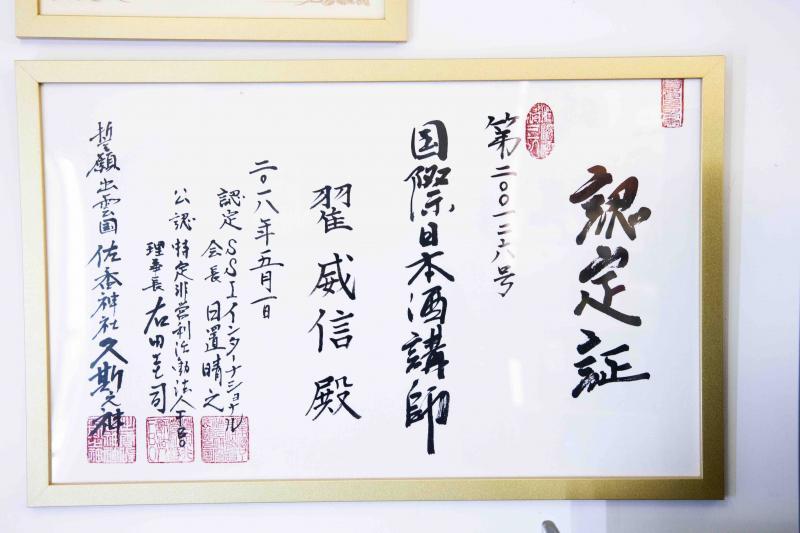 認定証
第二〇一二六号
国際日本酒講師
翟威信 殿
二〇一八年五月一日
認定 SSIインターナショナル
会長 日置晴之
公認 特定非営利活動法人FBO
理事長 右田圭司
誓願 出雲国 佐香神社 久斯之神